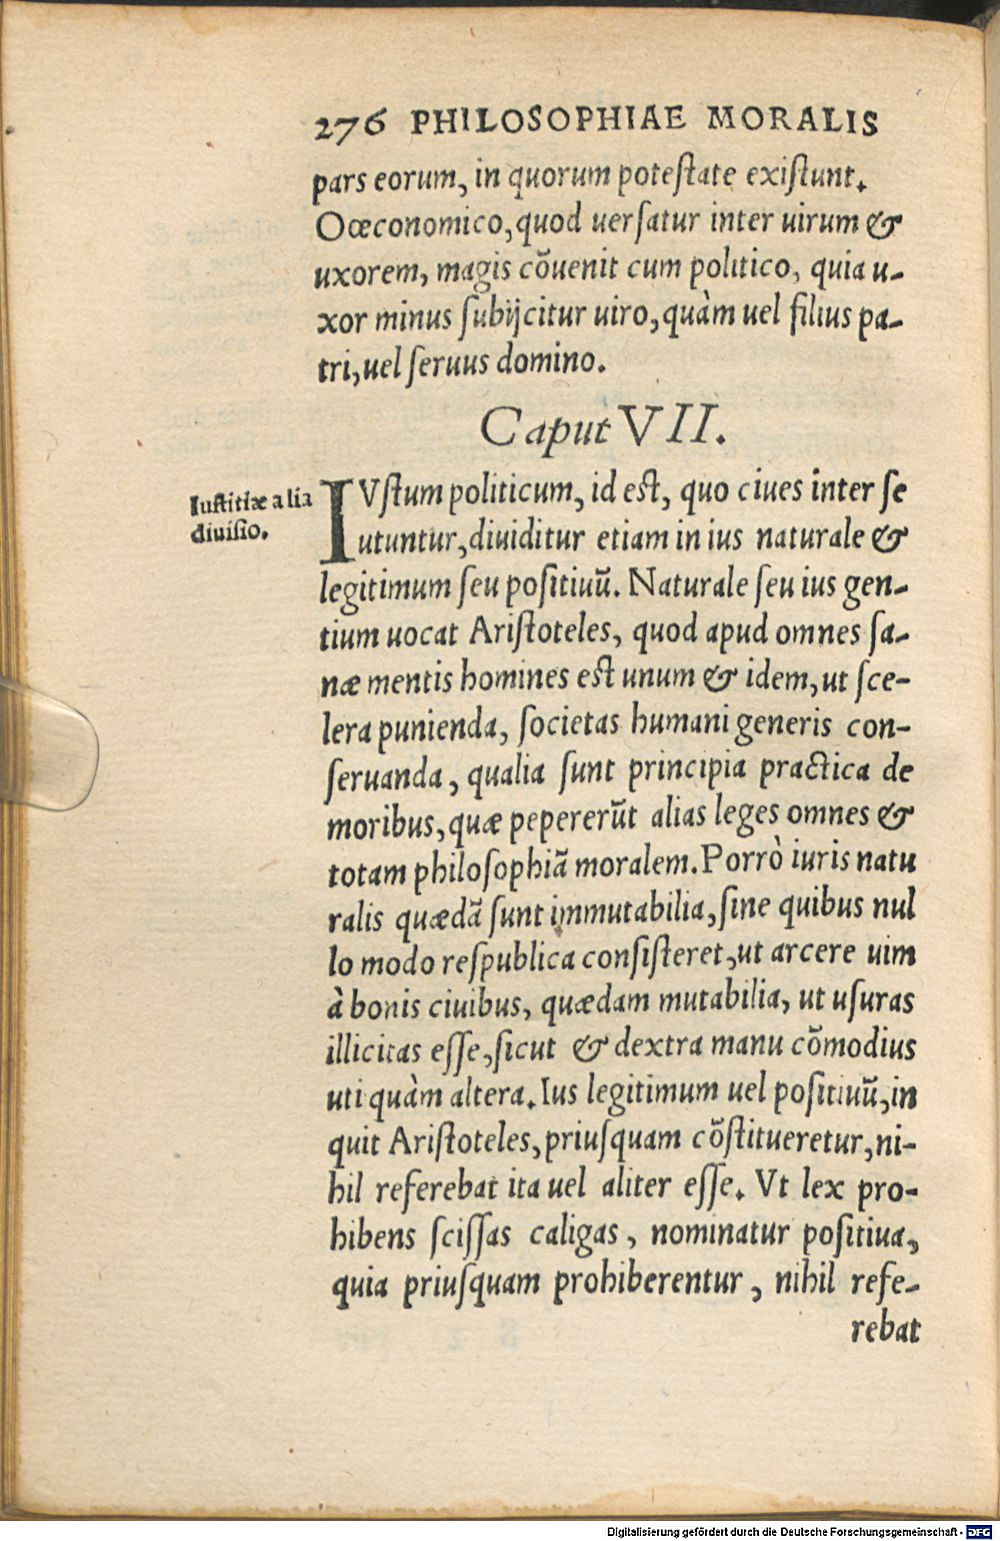 276 PHILOSOPHIAE MORALIS
pars eorum, in quorum potestate existunt.
Oœconomico, quod uersatur inter uirum &
uxorem, magis cōuenit cum politico, quia u-
xor minus subijcitur uiro, quàm uel filius pa-
tri, uel seruus domino.
Caput VII.
Iustitiæ alia
diuisio.
IVstum politicum, id est, quo ciues inter se
utuntur, diuiditur etiam in ius naturale &
legitimum seu positiuū. Naturale seu ius gen-
tium uocat Aristoteles, quod apud omnes sa-
næ mentis homines est unum & idem, ut sce-
lera punienda, societas humani generis con-
seruanda, qualia sunt principia practica de
moribus, quæ pepererūt alias leges omnes &
totam philosophiā moralem. Porrò iuris natu
ralis quædā sunt immutabilia, sine quibus nul
lo modo respublica consisteret, ut arcere uim
à bonis ciuibus, quædam mutabilia, ut usuras
illicitas esse, sicut & dextra manu cōmodius
uti quàm altera. Ius legitimum uel positiuū, in
quit Aristoteles, priusquam cōstitueretur, ni-
hil referebat ita uel aliter esse. Vt lex pro-
hibens scissas caligas, nominatur positiua,
quia priusquam prohiberentur, nihil refe-
rebat
Digitalisierung gefördert durch die Deutsche Forschungsgemeinschaft - DFG